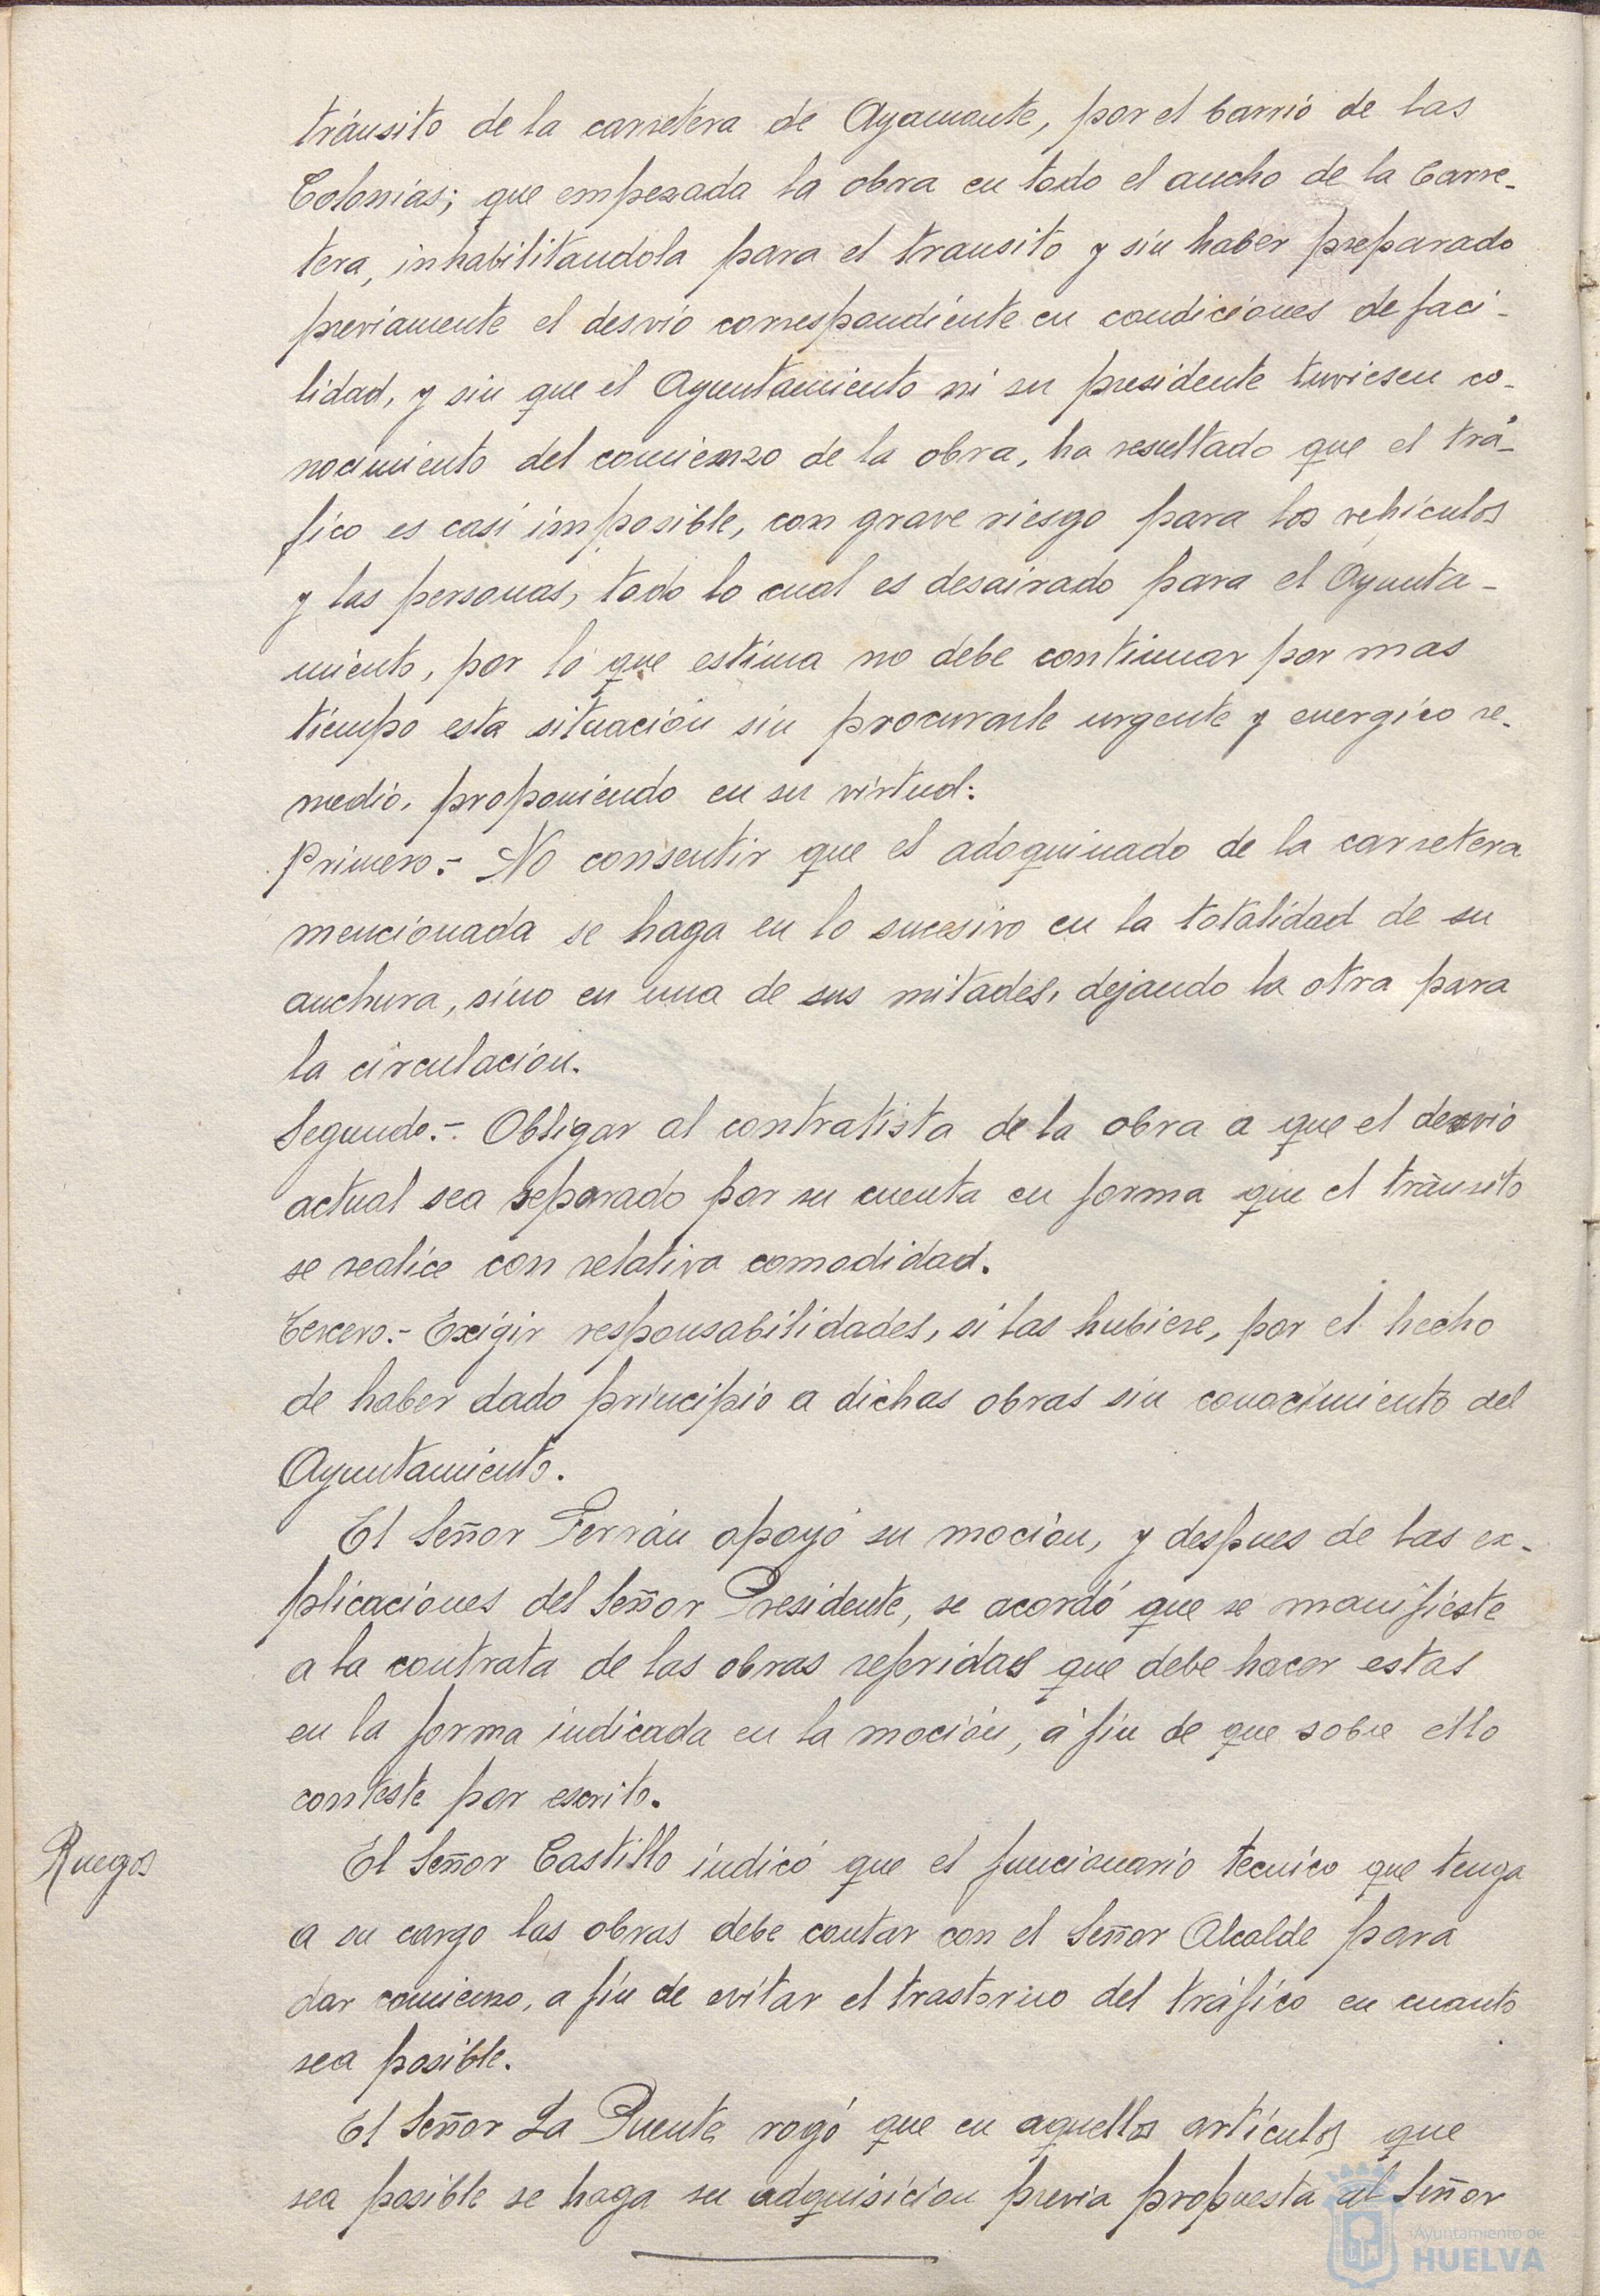 tránsito de la carretera de Ayamonte, por el barrio de las
Colonias; que empezada la obra en todo el ancho de la Carre-
tera, inhabilitandola para el transito y sin haber preparado
previamente el desvio correspondiente en condiciones de faci-
lidad, y sin que el Ayuntamiento ni su presidente tuviesen co-
nocimiento del comienzo de la obra, ha resultado que el trá-
fico es casi imposible, con grave riesgo para los vehículos
y las personas, todo lo cual es desairado para el Ayunta-
miento, por lo que estima no debe continuar por mas
tiempo esta situación sin procurarle urgente y energico re-
medio, proponiendo en su virtud:
Primero.- No consentir que el adoquinado de la carretera
mencionada se haga en lo sucesivo en la totalidad de su
anchura, sino en una de sus mitades, dejando la otra para
la circulación.
Segundo.- Obligar al contratista de la obra a que el desvio
actual sea reparado por su cuenta en forma que el trànsito
se realice con relativa comodidad.
Tercero.- Exigir responsabilidades, si las hubiere, por el hecho
de haber dado principio a dichas obras sin conocimiento del
Ayuntamiento.
El Señor Terrán apoyó su moción, y despues de las ex-
plicaciones del Señor Presidente, se acordó que se manifieste
a la contrata de las obras referidas que debe hacer estas
en la forma indicada en la moción, á fin de que sobre ello
conteste por escrito.
Ruegos
El Señor Castillo indicó que el funcionario tecnico que tenga
a su cargo las obras debe contar con el Señor Alcalde para
dar comienzo, a fin de evitar el trastorno del tráfico en cuanto
sea posible.
El Señor La Puente rogó que en aquellos artículos que
sea posible se haga su adquisición previa propuesta al Señor
Ayuntamiento de
HUELVA